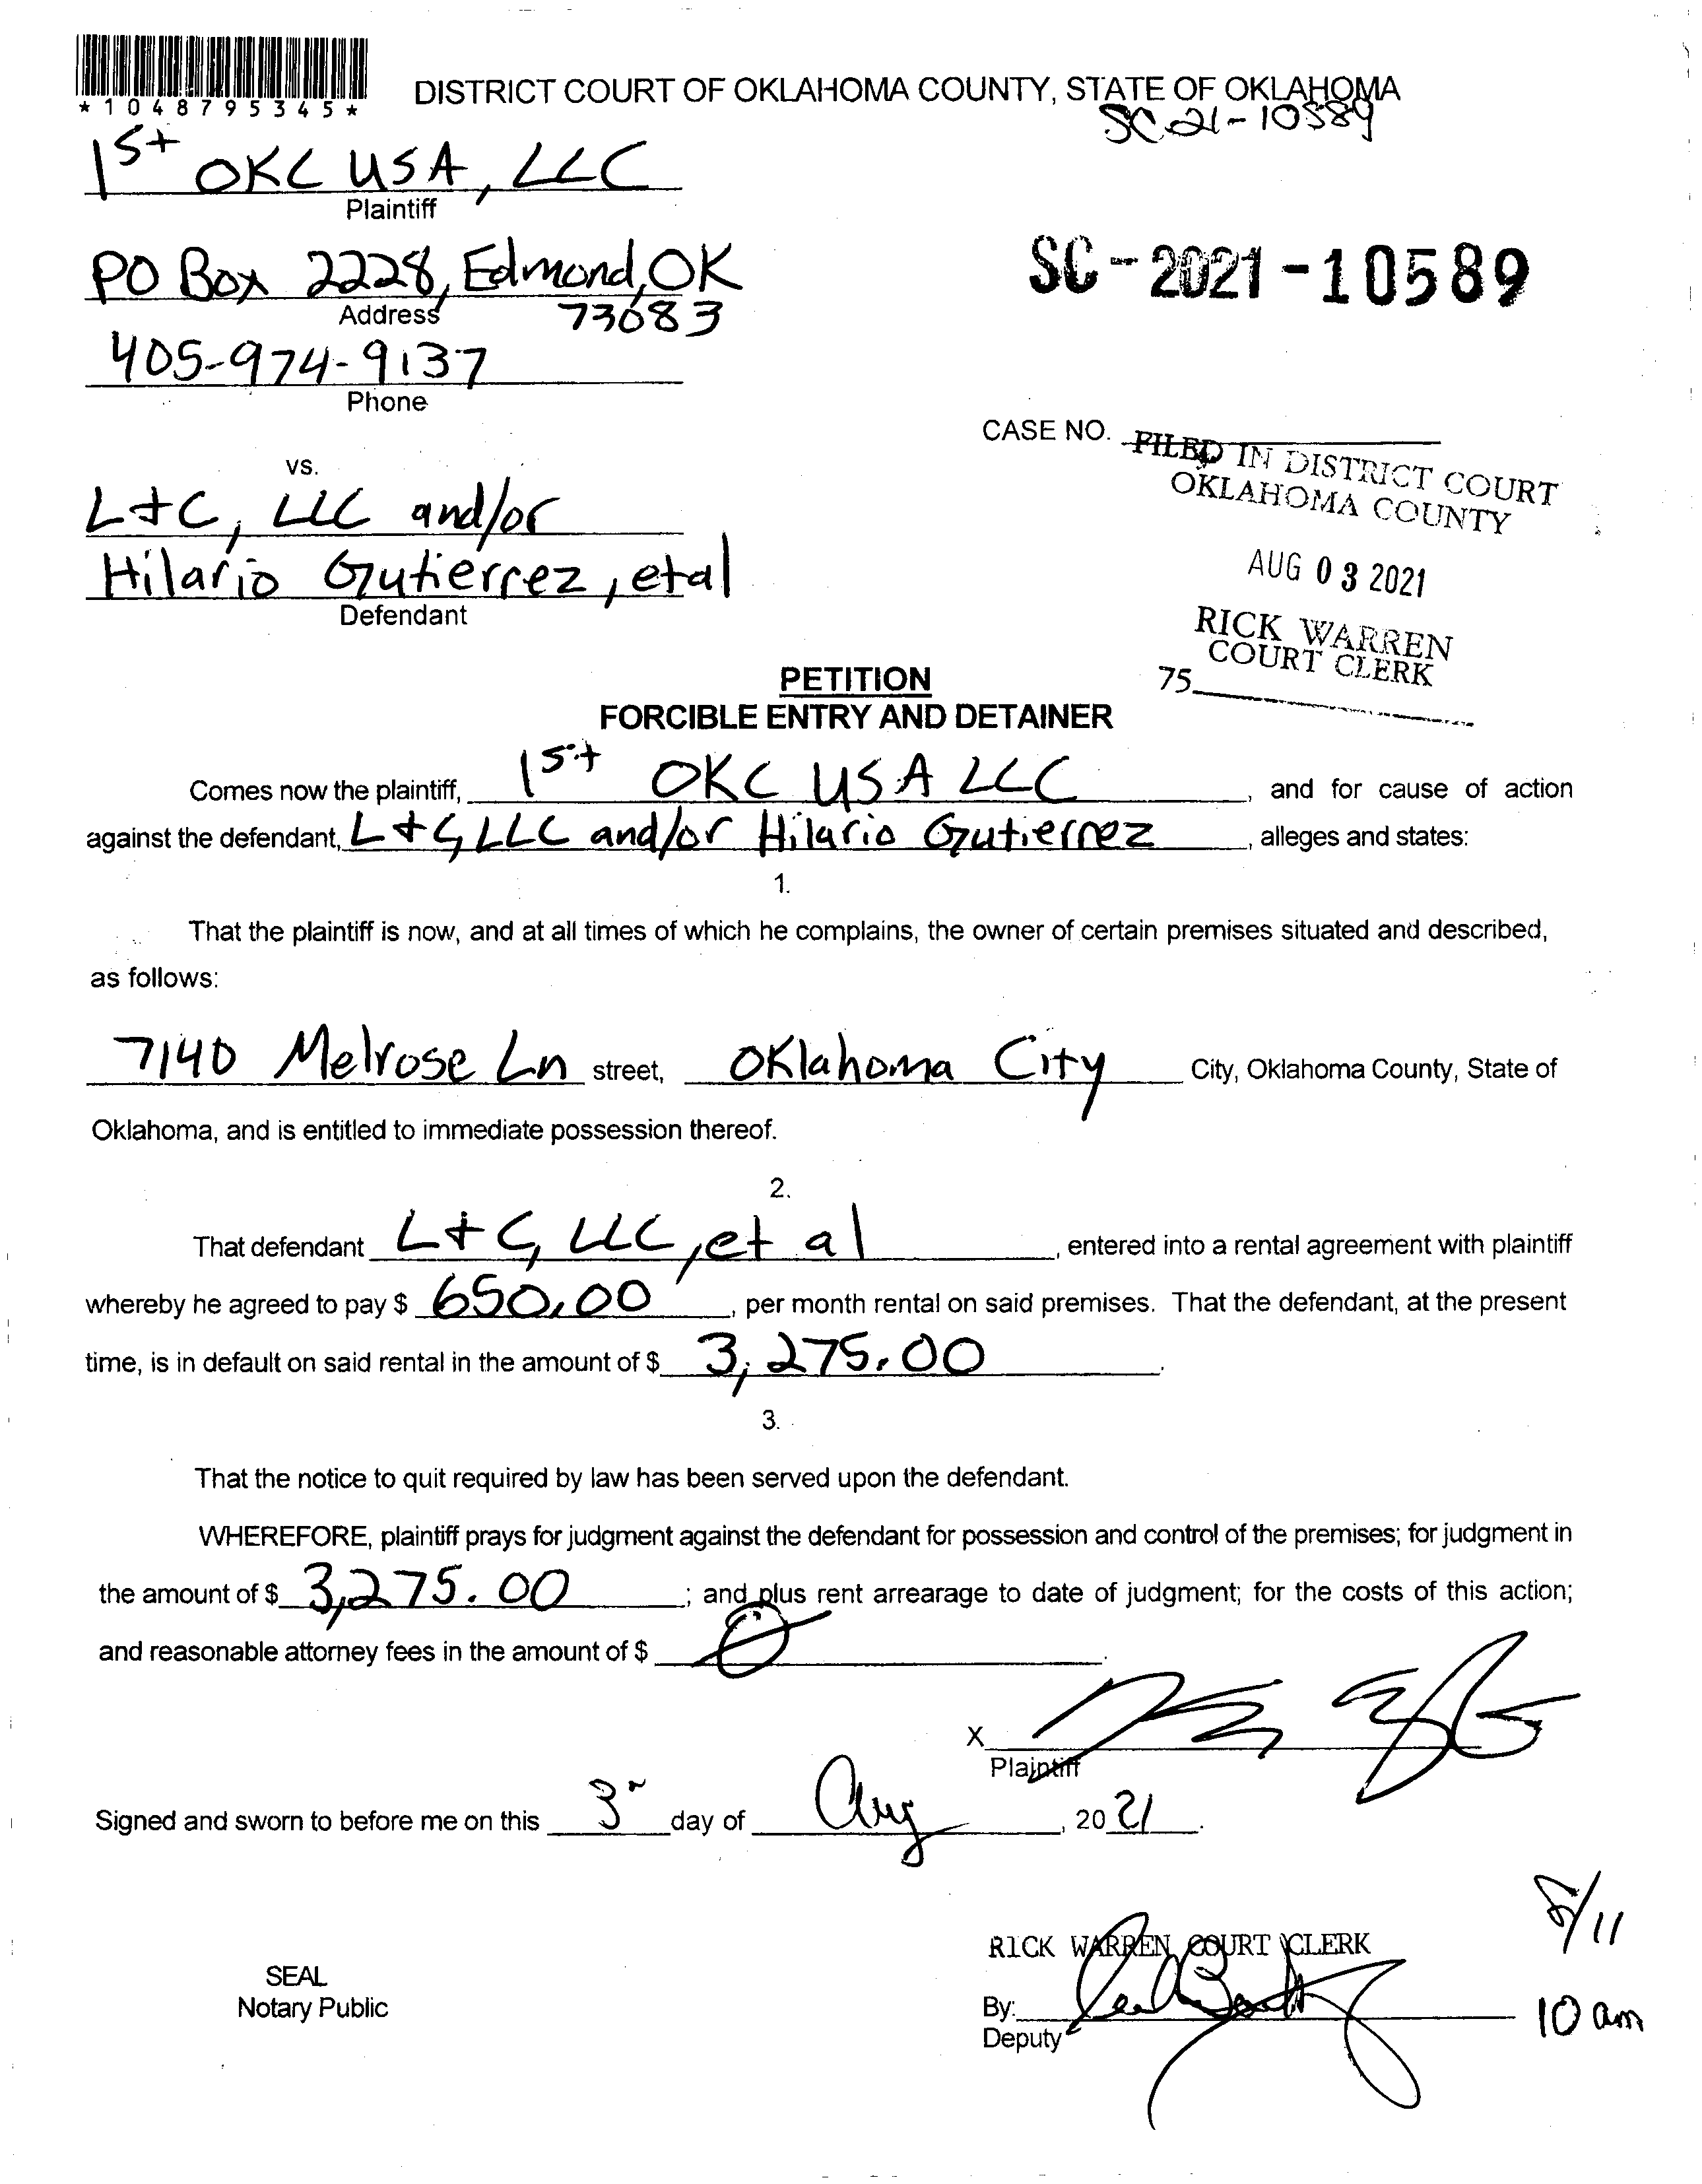 *1048795345*
DISTRICT COURT OF OKLAHOMA COUNTY, STATE OF OKLAHOMA
SC 21-10589
1st OKC USA, LLC
Plaintiff
PO Box 2228, Edmond, OK
73083
Address
SC-2021-10589
405-974-9137
Phone
CASE NO.
FILED IN DISTRICT COURT
OKLAHOMA COUNTY
vs.
L+C, LLC and/or
Hilario Gutierrez, et al
Defendant
AUG 03 2021
RICK WARREN
COURT CLERK
75
PETITION
FORCIBLE ENTRY AND DETAINER
Comes now the plaintiff, 1st OKC USA LLC, and for cause of action
against the defendant, L+C, LLC and/or Hilario Gutierrez, alleges and states:
1.
That the plaintiff is now, and at all times of which he complains, the owner of certain premises situated and described,
as follows:
7140 Melrose Ln street, Oklahoma City City, Oklahoma County, State of
Oklahoma, and is entitled to immediate possession thereof.
2.
That defendant L+C, LLC, et al, entered into a rental agreement with plaintiff
whereby he agreed to pay $ 650.00, per month rental on said premises. That the defendant, at the present
time, is in default on said rental in the amount of $ 3,275.00.
3.
That the notice to quit required by law has been served upon the defendant.
WHEREFORE, plaintiff prays for judgment against the defendant for possession and control of the premises; for judgment in
the amount of $ 3,275.00; and plus rent arrearage to date of judgment; for the costs of this action;
and reasonable attorney fees in the amount of $ 0.
X
Plaintiff
Signed and sworn to before me on this 3 day of Aug, 20 21.
8/11
RICK WARREN COURT CLERK
SEAL
Notary Public
By:
Deputy
10 am